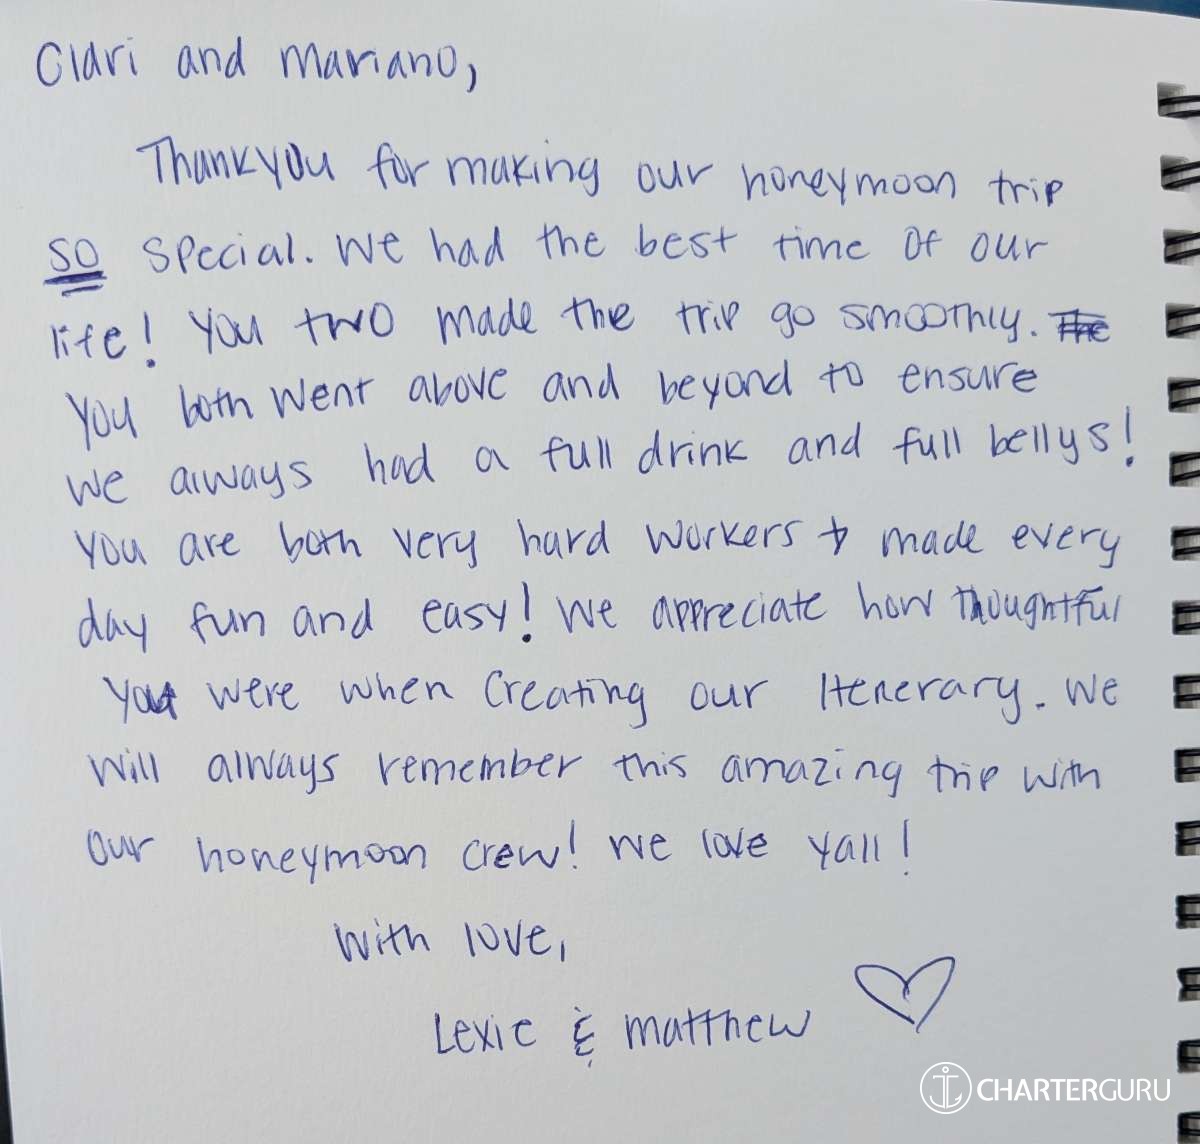 Clari and Mariano,
Thankyou for making our honeymoon trip
so special. We had the best time of our
life! You two made the trip go smoothly. The
You both went above and beyond to ensure
we always had a full drink and full bellys!
You are both very hard workers + made every
day fun and easy! We appreciate how thoughtful
you were when creating our Itenerary. We
will always remember this amazing trip with
our honeymoon crew! We love yall!
With love,
Lexie & Matthew
CHARTERGURU